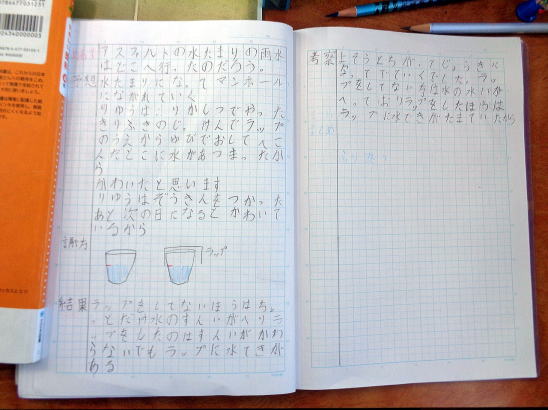 アスファルトの水たまりの雨水
はどこへ行ったのだろう。
予想 水たまりになってマンホール
にながれていく
りゆうは りかしつでやった
きりふきのじっけんでラップ
のうえからゆびでおしてへこ
んだとこに水があつまったか
ら
かわいたと思います
りゆうはぞうきんをつかった
あと次の日になるとかわいて
いるから
ラップ
結果 ラップをしてないほうはちょ
っとだけ水のすんいがへりラ
ップをしたのはすんいがかわ
らないでもラップに水てきが
ある
考察 上そうとちがってじょうきに
なってでていくていた。ラッ
プをしてないほうは水の水いが
へっておりラップをしたほうは
ラップに水てきがたまていたから